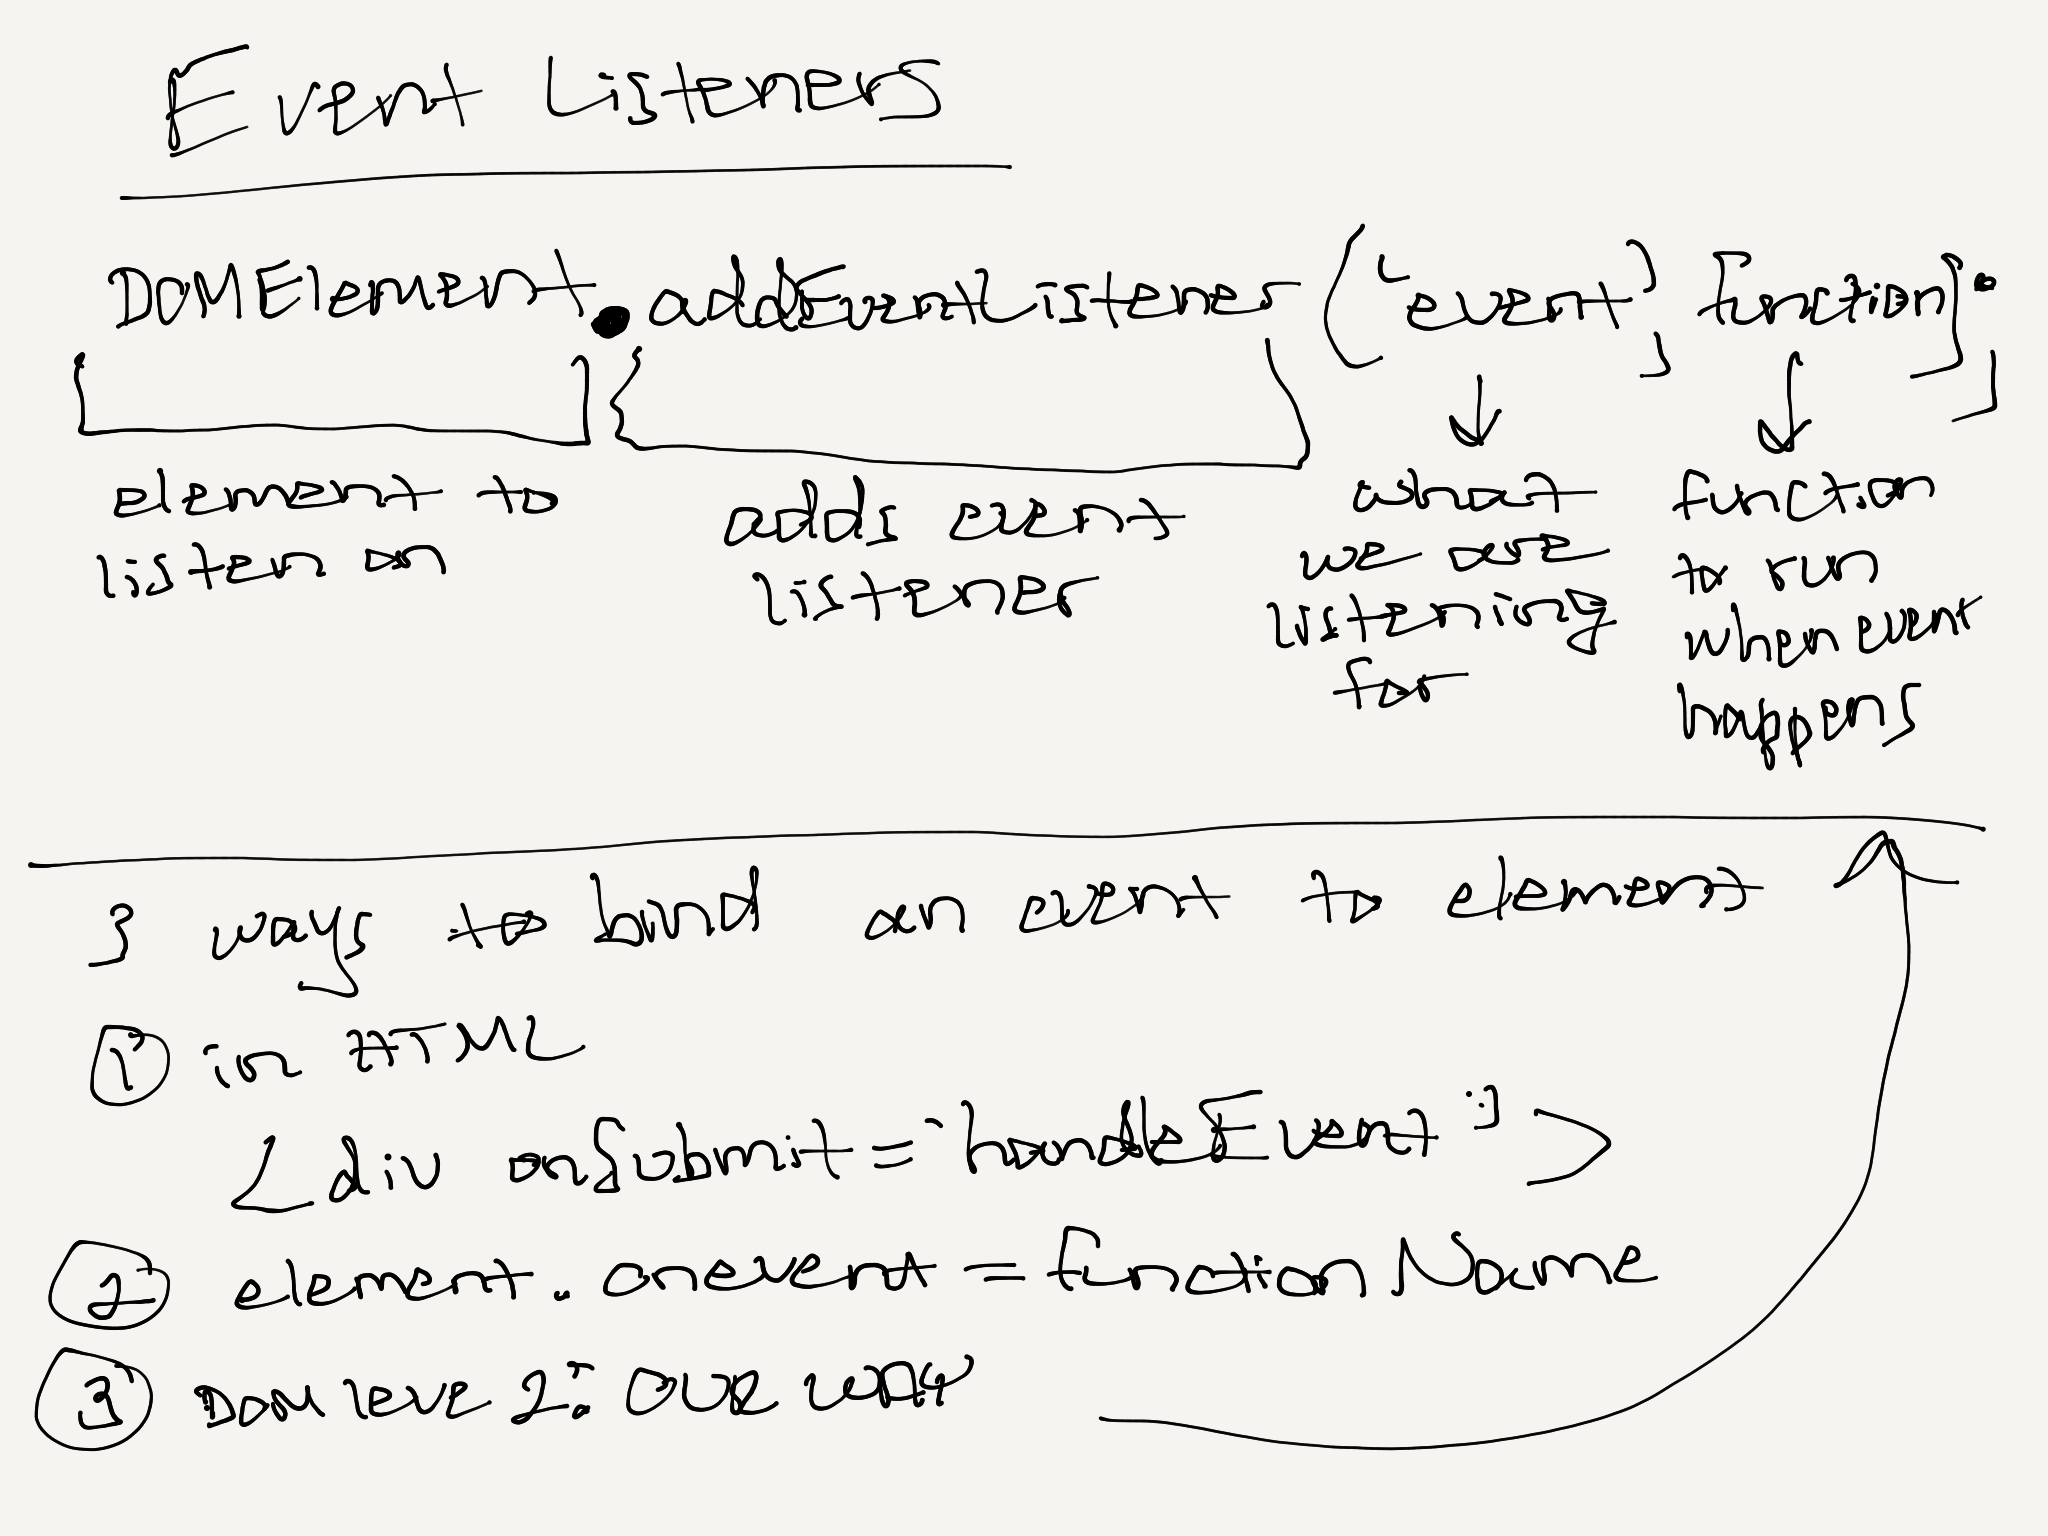 Event Listeners
DOMElement.addEventListener ('event', function);
element to
listen on
adds event
listener
what
we are
listening
for
function
to run
when event
happens
3 ways to bind an event to element
1 in HTML
<div onSubmit="handleEvent">
2 element.onevent = functionName
3 DOM leve 2: OUR WAY